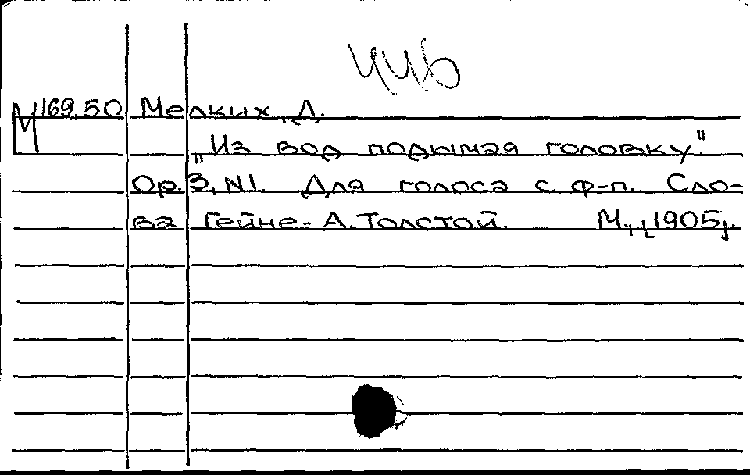 446
М 169.50 Мелких, Д.
„Из вод подымая головку".
Op. 3, N1. Для голоса с ф-п. Сло-
ва Гейне - А. Толстой. М., [1905].